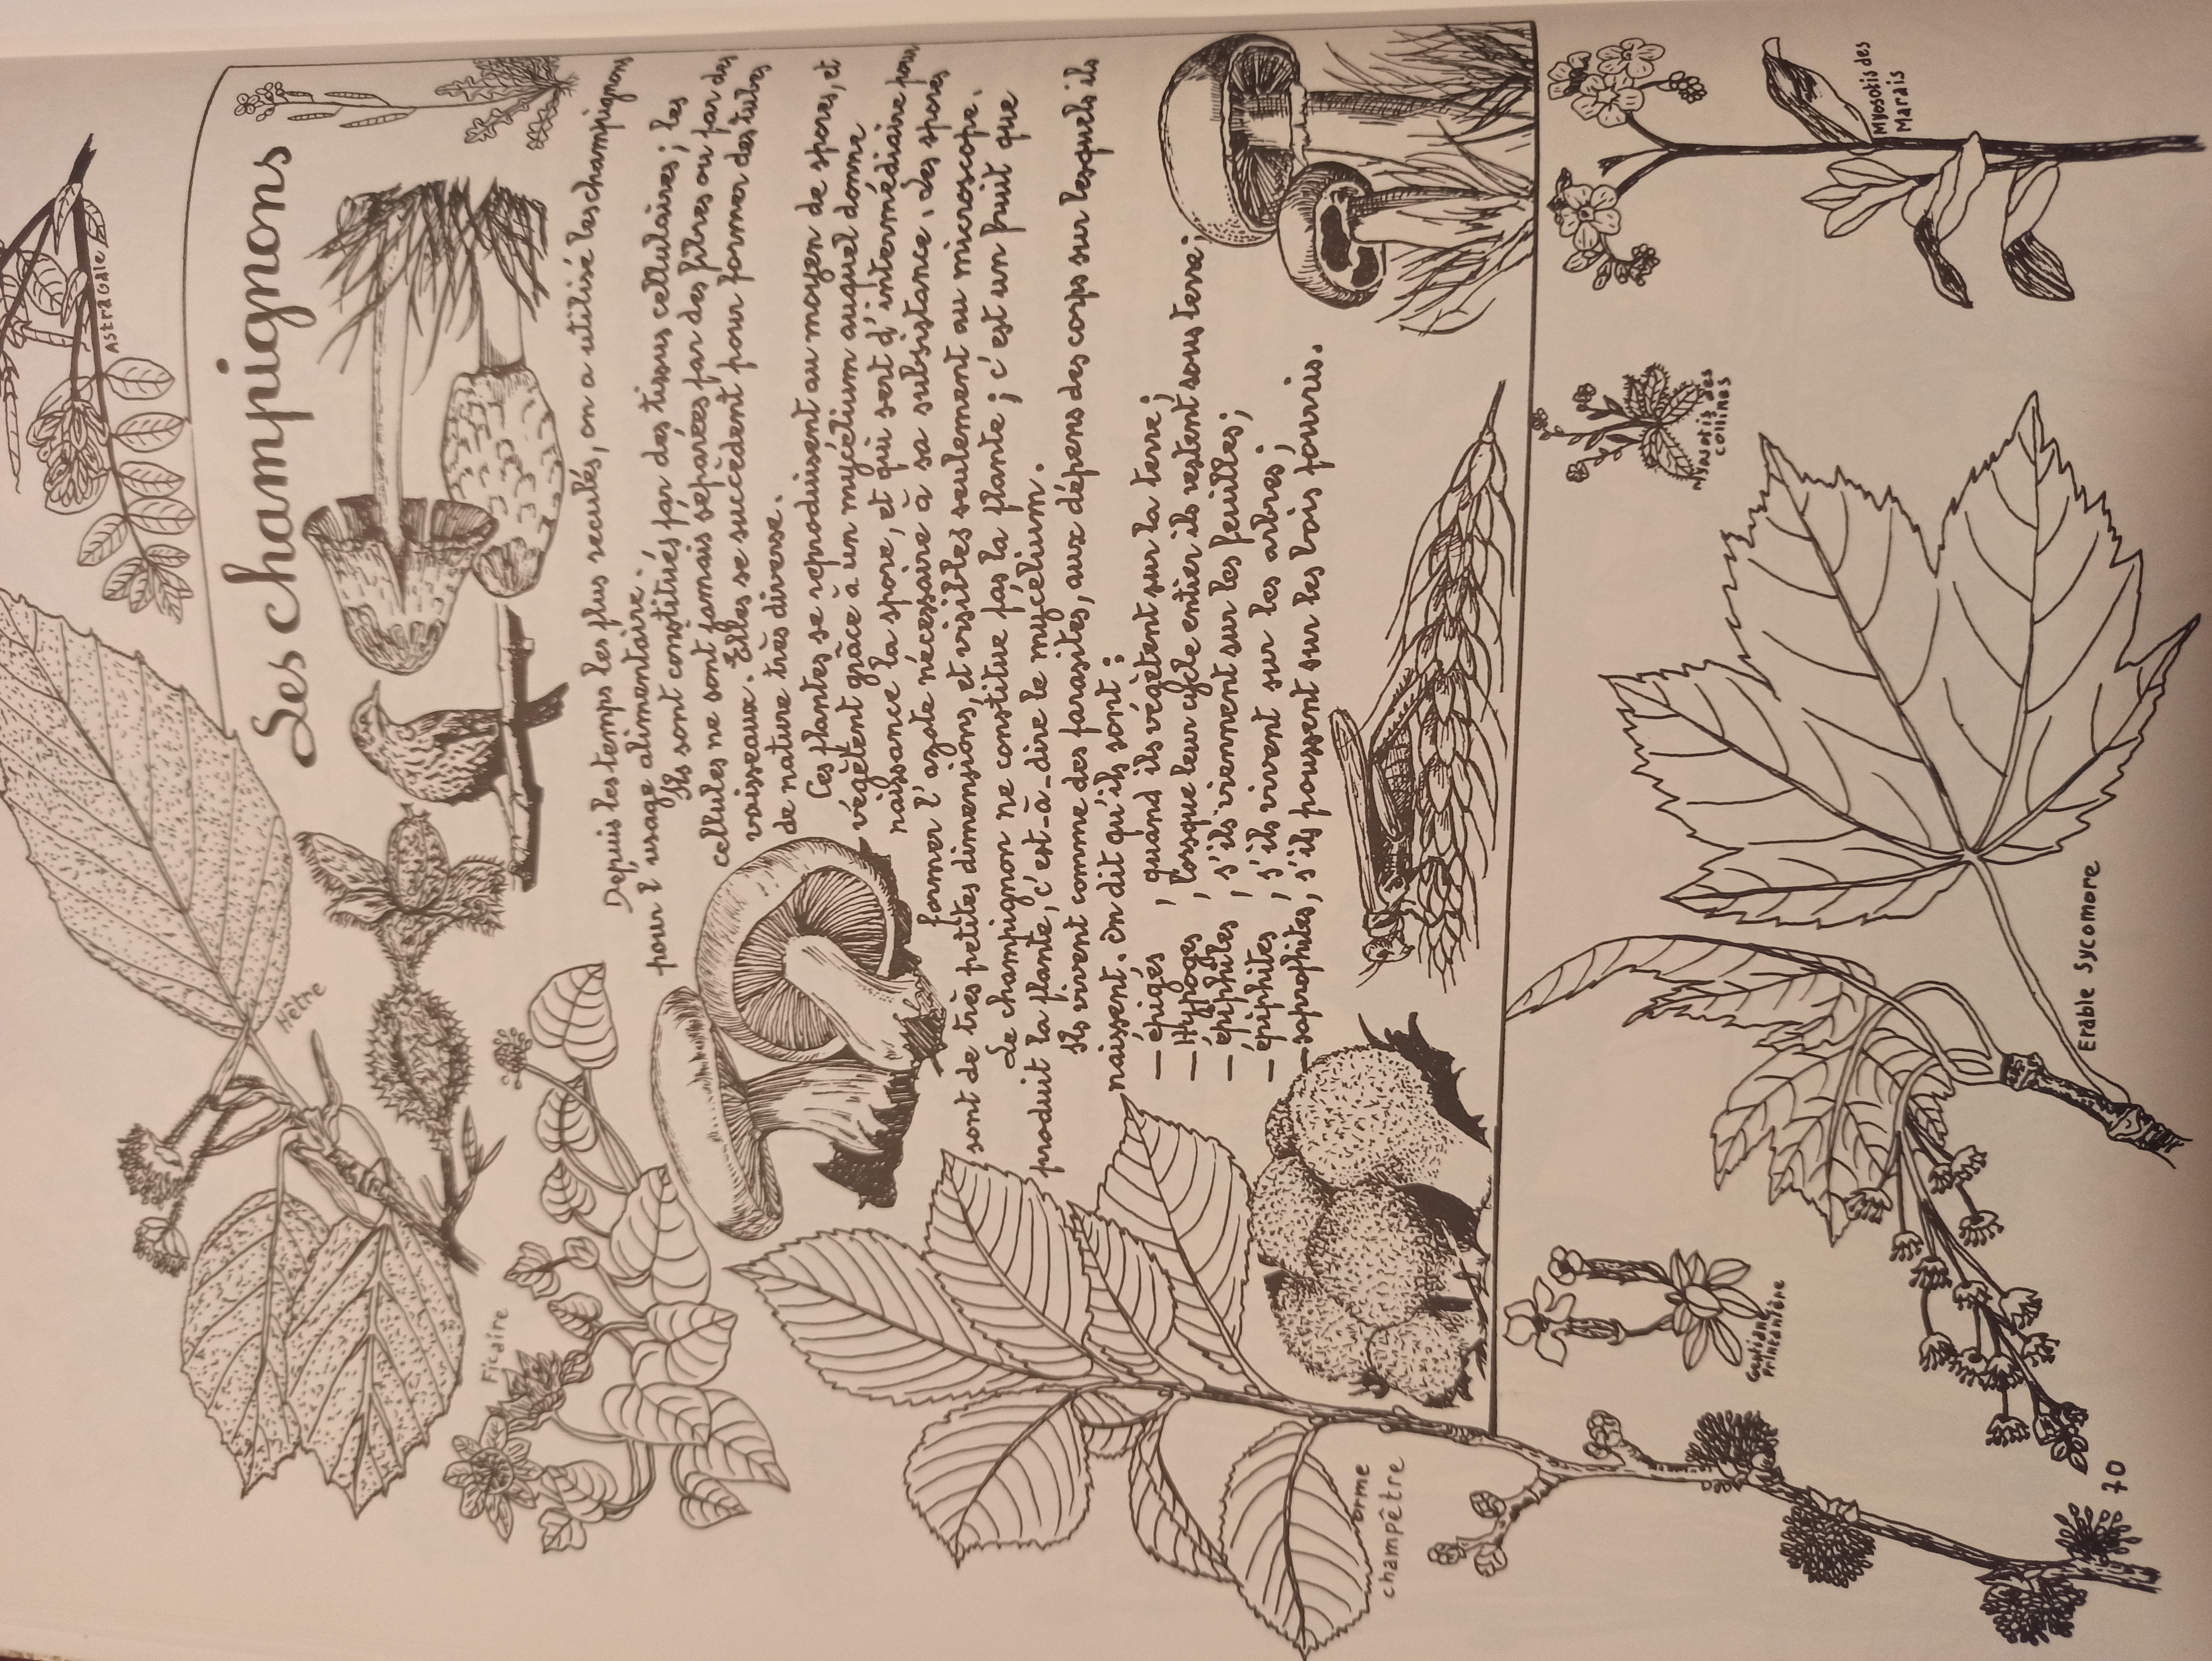 Astragale
Hêtre
Les champignons
Ficaire
Depuis les temps les plus reculés, on a utilisé les champignons
pour l'usage alimentaire.
Ils sont constitués par des tissus cellulaires ; les
cellules ne sont jamais séparées par des fibres ou par des
vaisseaux. Elles se succèdent pour former des tubes
de nature très diverse.
Ces plantes se reproduisent au moyen de spores, et
végètent grâce à un mycélium auquel donne
naissance la spore, et qui sert d'intermédiaire pour
former l'azote nécessaire à sa subsistance. Les spores
sont de très petites dimensions, et visibles seulement au microscope.
Le champignon ne constitue pas la plante ; c'est un fruit que
produit la plante, c'est-à-dire le mycélium.
Ils vivent comme des parasites, aux dépens des corps sur lesquels ils
naissent. On dit qu'ils sont :
— épigés , quand ils végètent sur la terre ;
— Hypogés , lorsque leur cycle entier ils restent sous terre ;
— épiphiles , s'ils viennent sur les feuilles ;
— épiphites , s'ils vivent sur les arbres ;
— saprophites, s'ils poussent sur les bois pourris.
orme
champêtre
Gentiane
Printanière
Myosotis des
collines
Myosotis des
Marais
Erable Sycomore
70